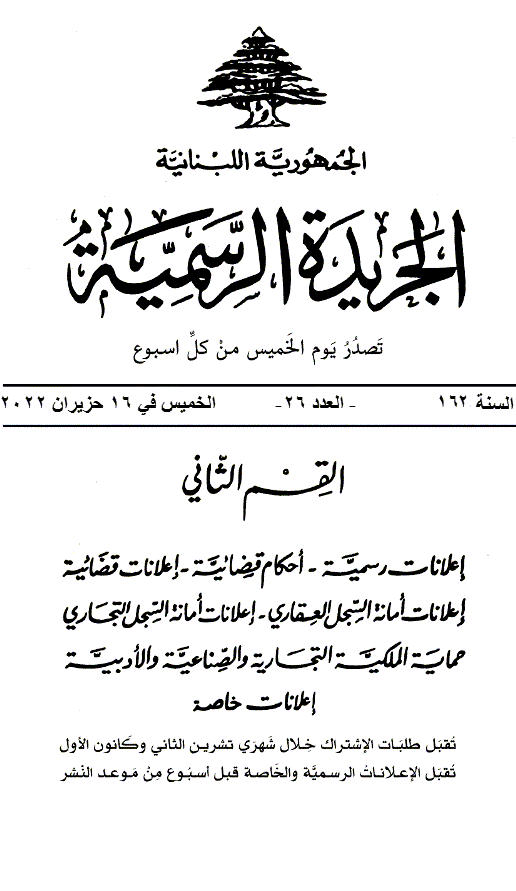 الجُمهُوريَّة اللبْنانيَّة
الجَريدَة الرسَّمِيَّة
تَصدُرُ يَوم الخَميس منْ كلِّ اسبوع
السنة ١٦٢ - العدد ٢٦- الخميس في ١٦ حزيران ٢٠٢٢
القِسْم الثّاني
إعلانات رسميَّة - أحكام قضائيَّة - إعلانات قضائية
إعلانات أمانة السّجل العقاري - إعلانات أمانة السّجل التجاري
حماية الملكيَّة التجارية والصّناعيَّة والأدبيَّة
إعلانات خاصة
تُقبَل طلبَات الإشتراك خِلال شَهرَي تشرين الثاني وكَانون الأول
تُقبَل الإعلاناتُ الرسميَّة والخَاصة قبل أسبُوع مِنْ مَوعد النّشر